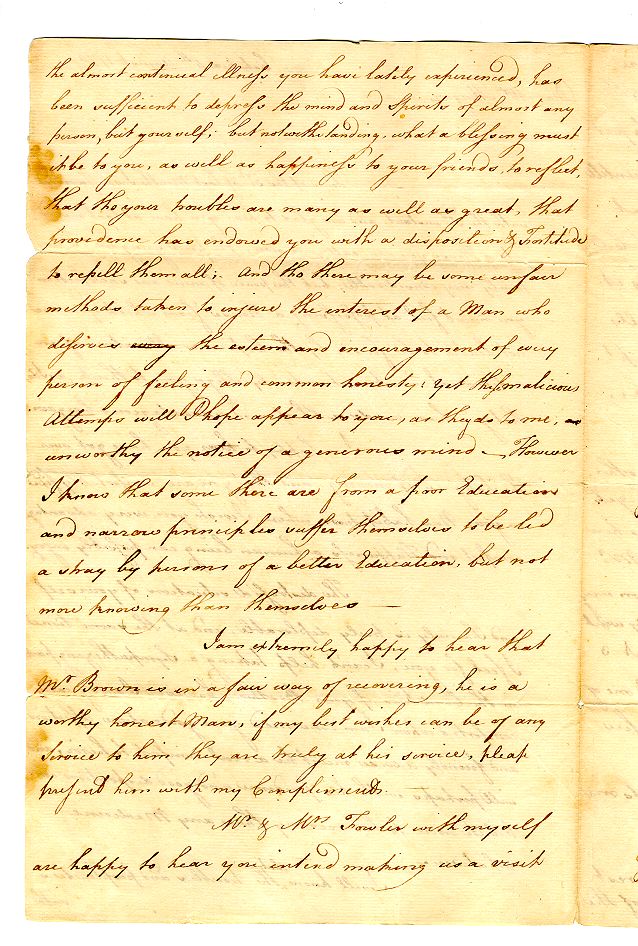 the almost continual illness you have lately experienced, has
been sufficient to depress the mind and Spirits of almost any
person, but yourself; but notwithstanding, what a blessing must
it be to you, as well as happiness to your friends, to reflect,
that tho your troubles are many as well as great, that
providence has endowed you with a disposition & Fortitude
to repell them all; And tho there may be some unfair
methods taken to injure the interest of a Man who
deserves every the esteem and encouragement of every
person of feeling and common honesty: yet these malicious
Attemps will I hope appear to you, as they do to me, as
unworthy the notice of a generous mind - However
I know that some there are from a poor Education
and narrow principles suffer themselves to be led
a stray by persons of a better Education, but not
more knowing than themselves —
I am extremely happy to hear that
Mr. Brown is in a fair way of recovering, he is a
worthy honest Man, if my best wishes can be of any
Service to him they are truly at his service, pleas
present him with my Compliments.
Mr. & Mrs. Fowler with myself
are happy to hear you intend making us a visit